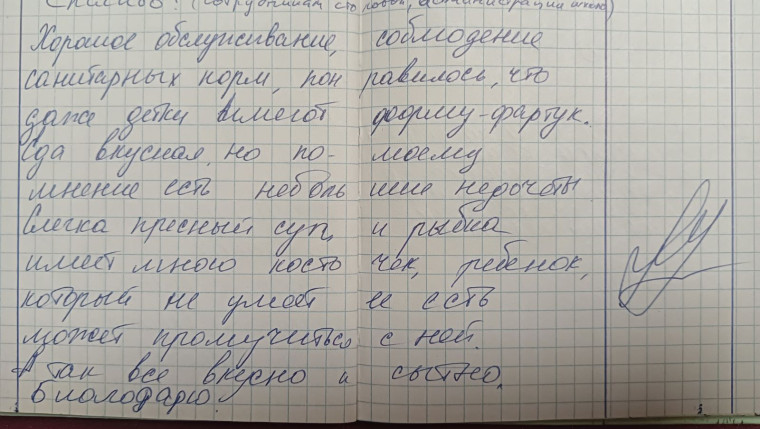 Спасибо! (сотрудникам столовой, администрации школы)
Хорошее обслуживание, соблюдение
санитарных норм, понравилось, что
даже детки имеют форму-фартук.
Еда вкусная, но по-моему
мнение есть небольшие недочёты
Слегка пресный суп, и рыбка
имеет много косточек, ребенок,
который не умеет ее есть
может промучиться с ней.
А так все вкусно и сытно.
Благодарю